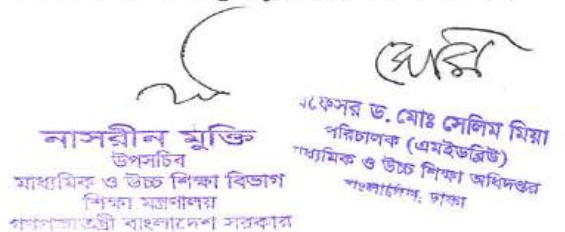 নাসরীন মুক্তি
উপসচিব
মাধ্যমিক ও উচ্চ শিক্ষা বিভাগ
শিক্ষা মন্ত্রণালয়
গণপ্রজাতন্ত্রী বাংলাদেশ সরকার
প্রফেসর ড. মোঃ সেলিম মিয়া
পরিচালক (এমইডব্লিউ)
মাধ্যমিক ও উচ্চ শিক্ষা অধিদপ্তর
বাংলাদেশ, ঢাকা